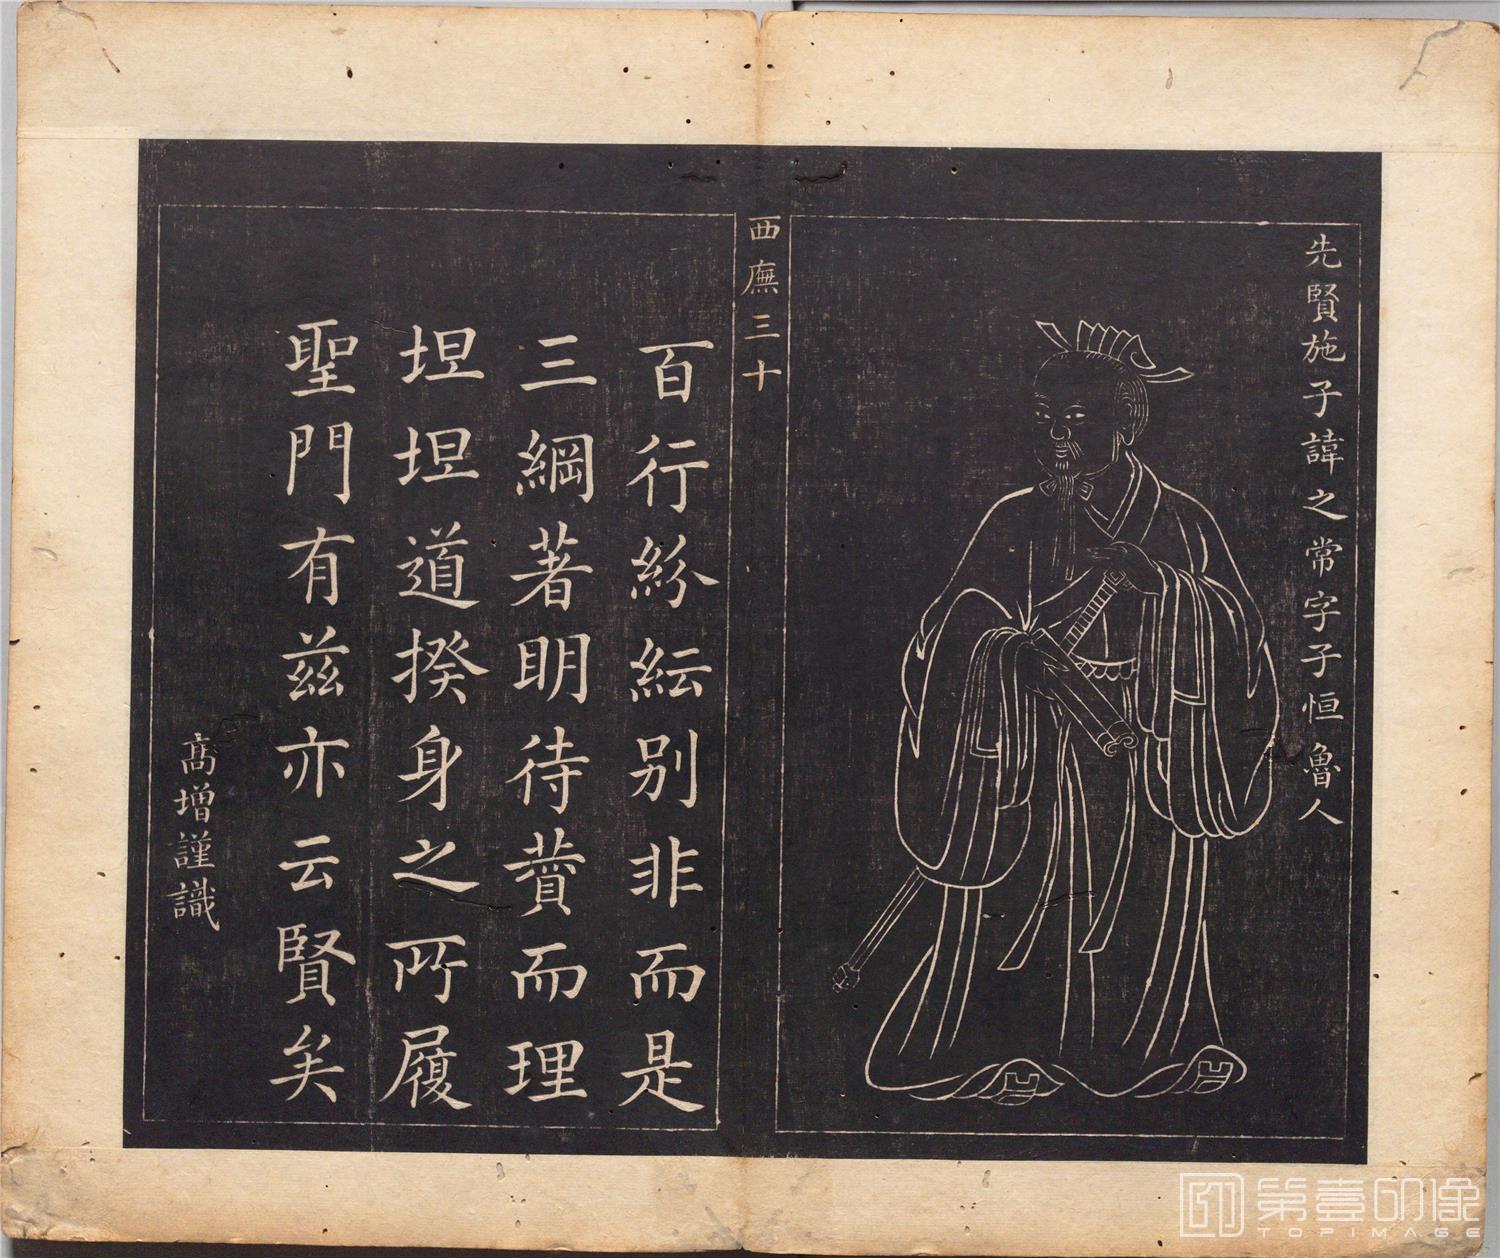 先賢施子諱之常字子恒魯人
西廡三十
百行紛紜別非而是
三綱著明待蕢而理
坦坦道揆身之所履
聖門有茲亦云賢矣
高增謹識
第壹印像
TOPIMAGE